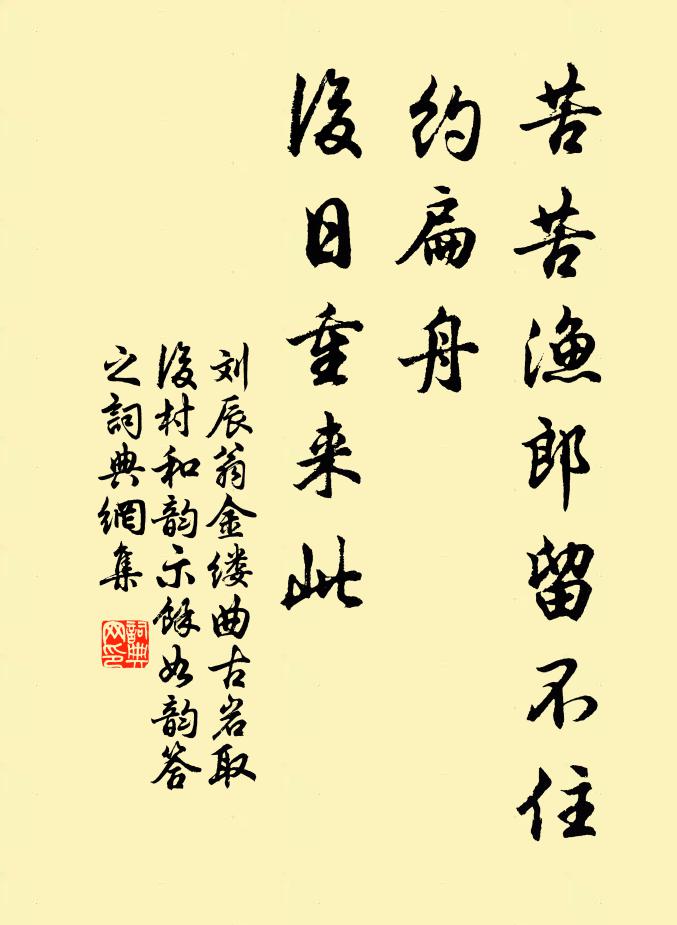 苦苦渔郎留不住
约扁舟
後日重来此
刘辰翁金缕曲古岩取
後村和韵示馀如韵答
之詞典網集
詞典
网印